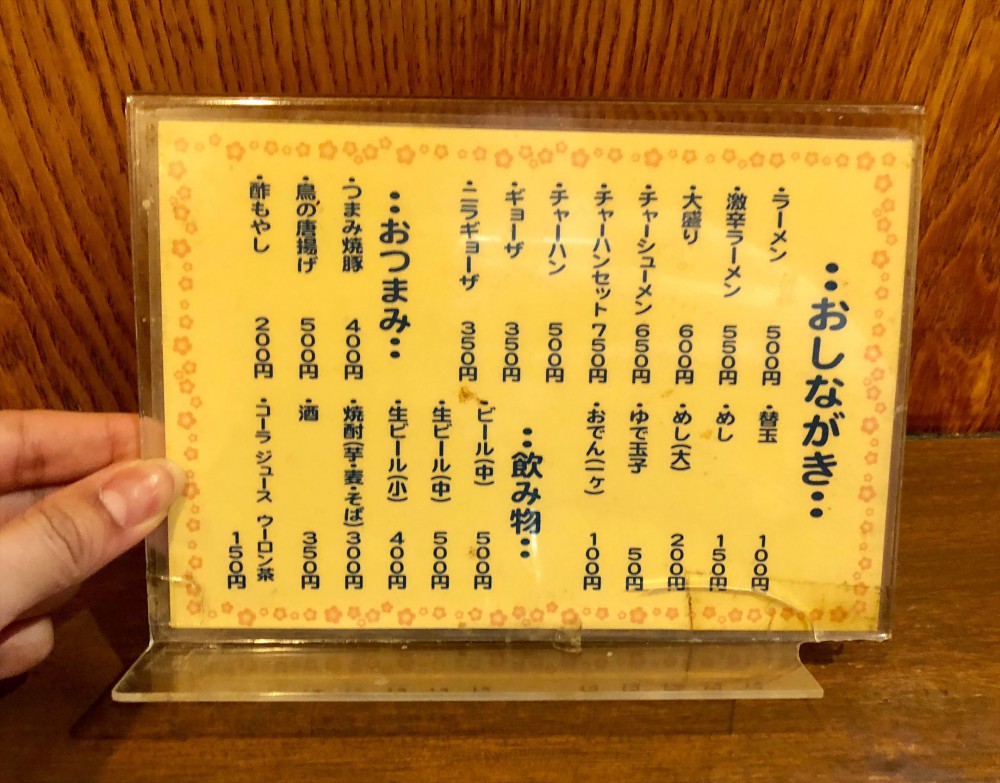 :おしながき:
・ラーメン 500円
・激辛ラーメン 550円
・大盛り 600円
・チャーシューメン 650円
・チャーハンセット 750円
・チャーハン 500円
・ギョーザ 350円
・ニラギョーザ 350円
・替玉 100円
・めし 150円
・めし(大) 200円
・ゆで玉子 50円
・おでん(一ヶ) 100円
:おつまみ:
・つまみ焼豚 400円
・鳥の唐揚げ 500円
・酢もやし 200円
:飲み物:
・ビール(中) 500円
・生ビール(中) 500円
・生ビール(小) 400円
・焼酎(芋・麦・そば) 300円
・酒 350円
・コーラ ジュース ウーロン茶 150円